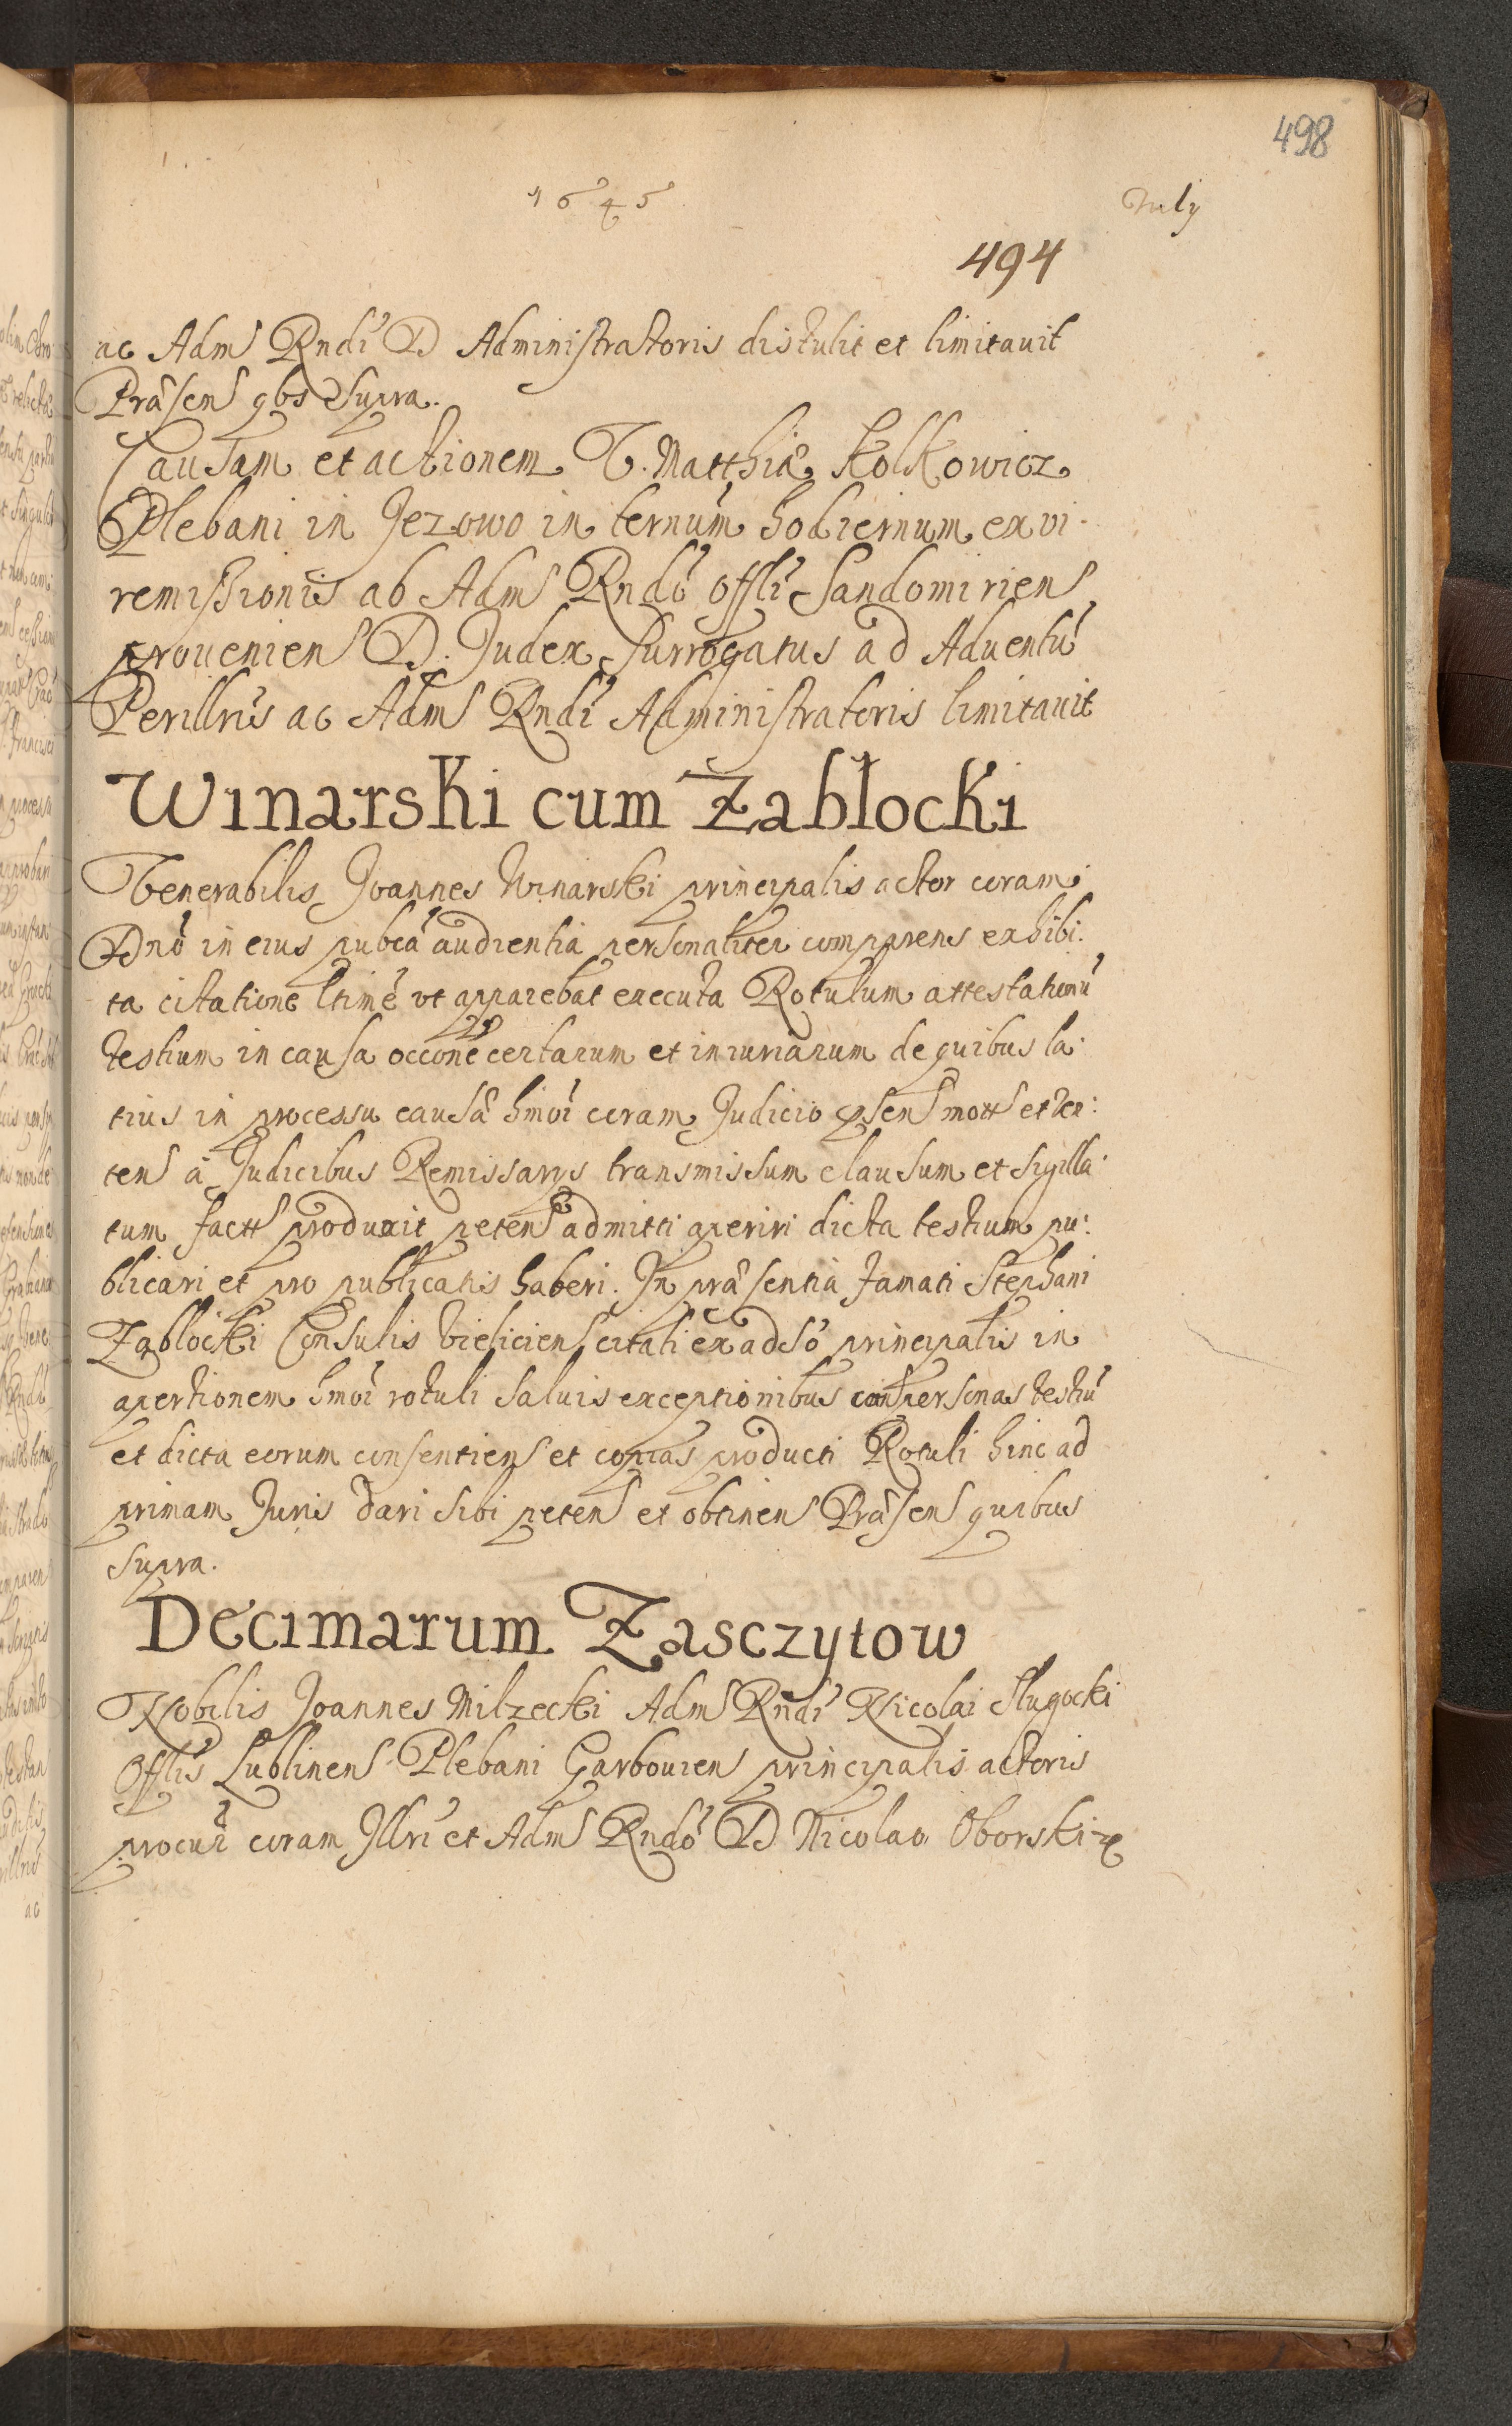 498
1645 July
494
ac Adm Rndi D Administratoris distulit et limitauit
Præsen qbs Supra.
Causam et actionem V. Matthiæ Kolkowicz
Plebani in Jezowo in ternum hodiernum ex vi
remissionis ab Adm Rndo Offli Sandomirien
prouenien D. Judex Surrogatus ad Aduentū
Perillris ac Adm Rndi Administratoris limitauit
Winarski cum Zabłocki
Venerabilis Joannes Winarski principalis actor coram
Dno in eius pubca audientia personaliter comprens exhibi:
ta citatione ltime vt apparebat executa Rotulum attestationū
testium in causa occone certarum et iniuriarum de quibus la:
tius in processu causæ hmoi coram Judicio psen mott et ver:
ten a Judicibus Remissarys transmissum clausum et sigilla:
tum factt produxit peten admitti aperiri dicta testium pu:
blicari et pro publicatis haberi. In præsentia famati Stephani
Zablocki Consulis bielicien citati ex adso principalis in
apertionem hmoi rotuli saluis exceptionibus con personas testiū
et dicta eorum consentiens et copias producti Rotuli hinc ad
primam Juris dari sibi peten et obtinen Præsen quibus
supra.
Decimarum Zasczytow
Nobilis Joannes Milzecki Adm Rndi Nicolai Slugocki
Offlis Lublinen Plebani Garbouien principalis actoris
procur coram Illri et Adm Rndo D Nicolao Oborski